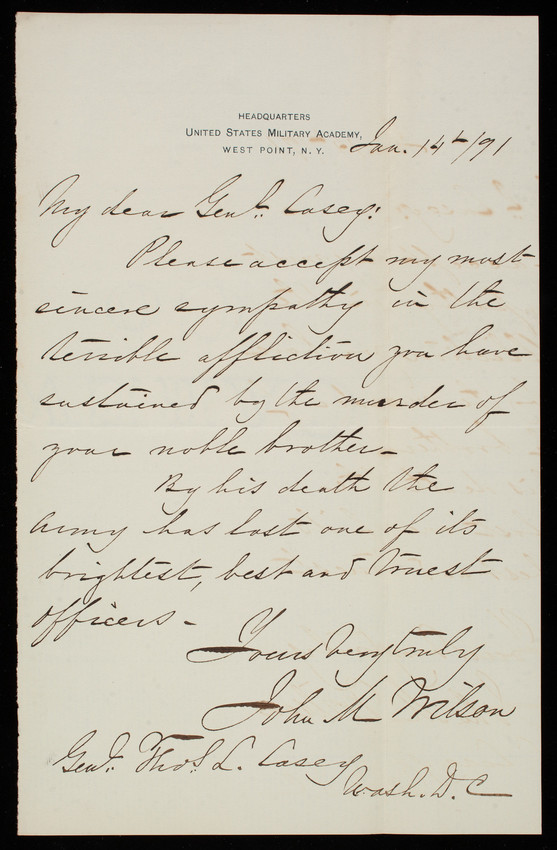 HEADQUARTERS
UNITED STATES MILITARY ACADEMY,
WEST POINT, N. Y.
Jan. 14th/91
My dear Genl. Casey:
Please accept my most
sincere sympathy in the
terrible affliction you have
sustained by the murder of
your noble brother -
By his death the
Army has lost one of its
brightest, best and truest
officers -
Yours very truly
John M Wilson
Genl. Thos. L. Casey
Wash. D. C